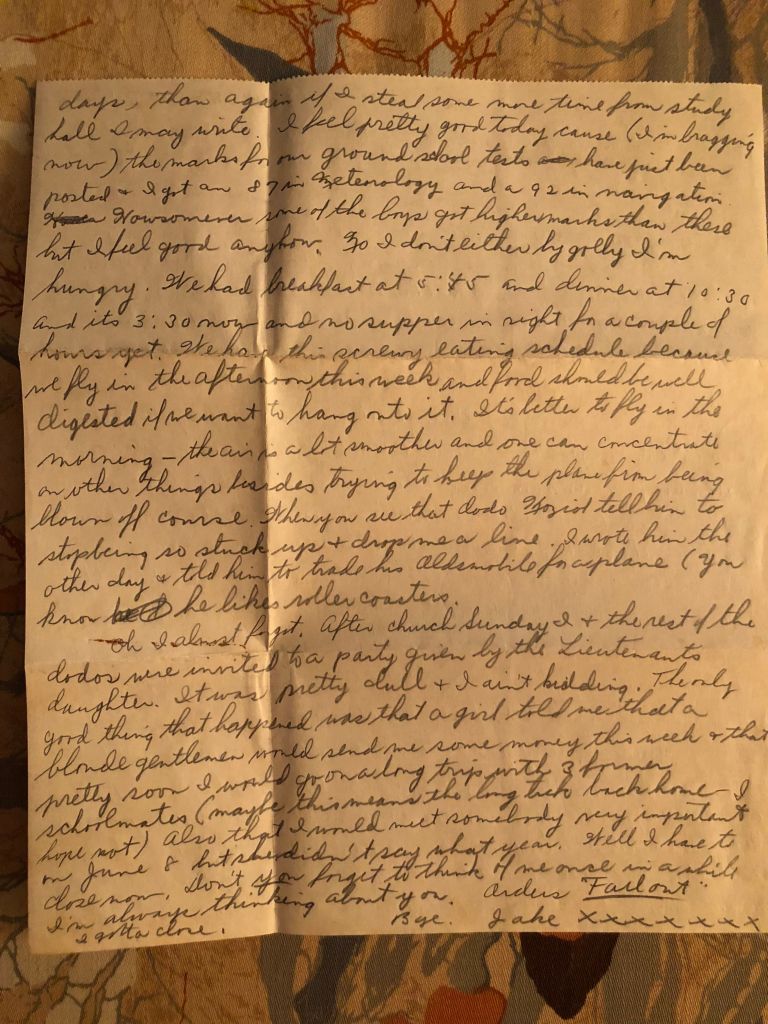 days, than again if I steal some more time from study
hall I may write. I feel pretty good today cause (I'm bragging
now) the marks for our ground school tests have just been
posted & I got an 87 in Meteorology and a 92 in navigation.
Howsomever some of the boys got higher marks than these
but I feel good anyhow. No I don't either by golly I'm
hungry. We had breakfast at 5:45 and dinner at 10:30
and its 3:30 now and no supper in sight for a couple of
hours yet. We have this screwy eating schedule because
we fly in the afternoon this week and food should be well
digested if we want to hang onto it. It's better to fly in the
morning - the air is a lot smoother and one can concentrate
on other things besides trying to keep the plane from being
blown off course. When you see that dodo tell him to
stop being so stuck up & drop me a line. I wrote him the
other day & told him to trade his Oldsmobile for a plane (you
know he likes roller coasters.
oh I almost forgot. After church Sunday I & the rest of the
dodos were invited to a party given by the Lieutenants
daughter. It was pretty dull & I ain't kidding. The only
good thing that happened was that a girl told me that a
blonde gentlemen would send me some money this week & that
pretty soon I would go on a long trip with 3 former
schoolmates (maybe this means the long trek back home - I
hope not) Also that I would meet somebody very important
on June 8 but she didn't say what year. Well I have to
close now. Don't you forget to think of me once in a while
I'm always thinking about you. Orders "Fall out"
I gotta close. Bye. Jake x x x x x x x